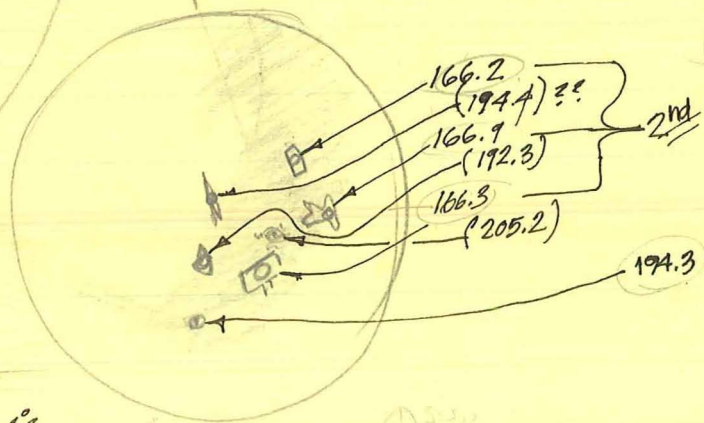 166.2
(194.4) ??
166.9
(192.3)
2nd
166.3
(205.2)
194.3